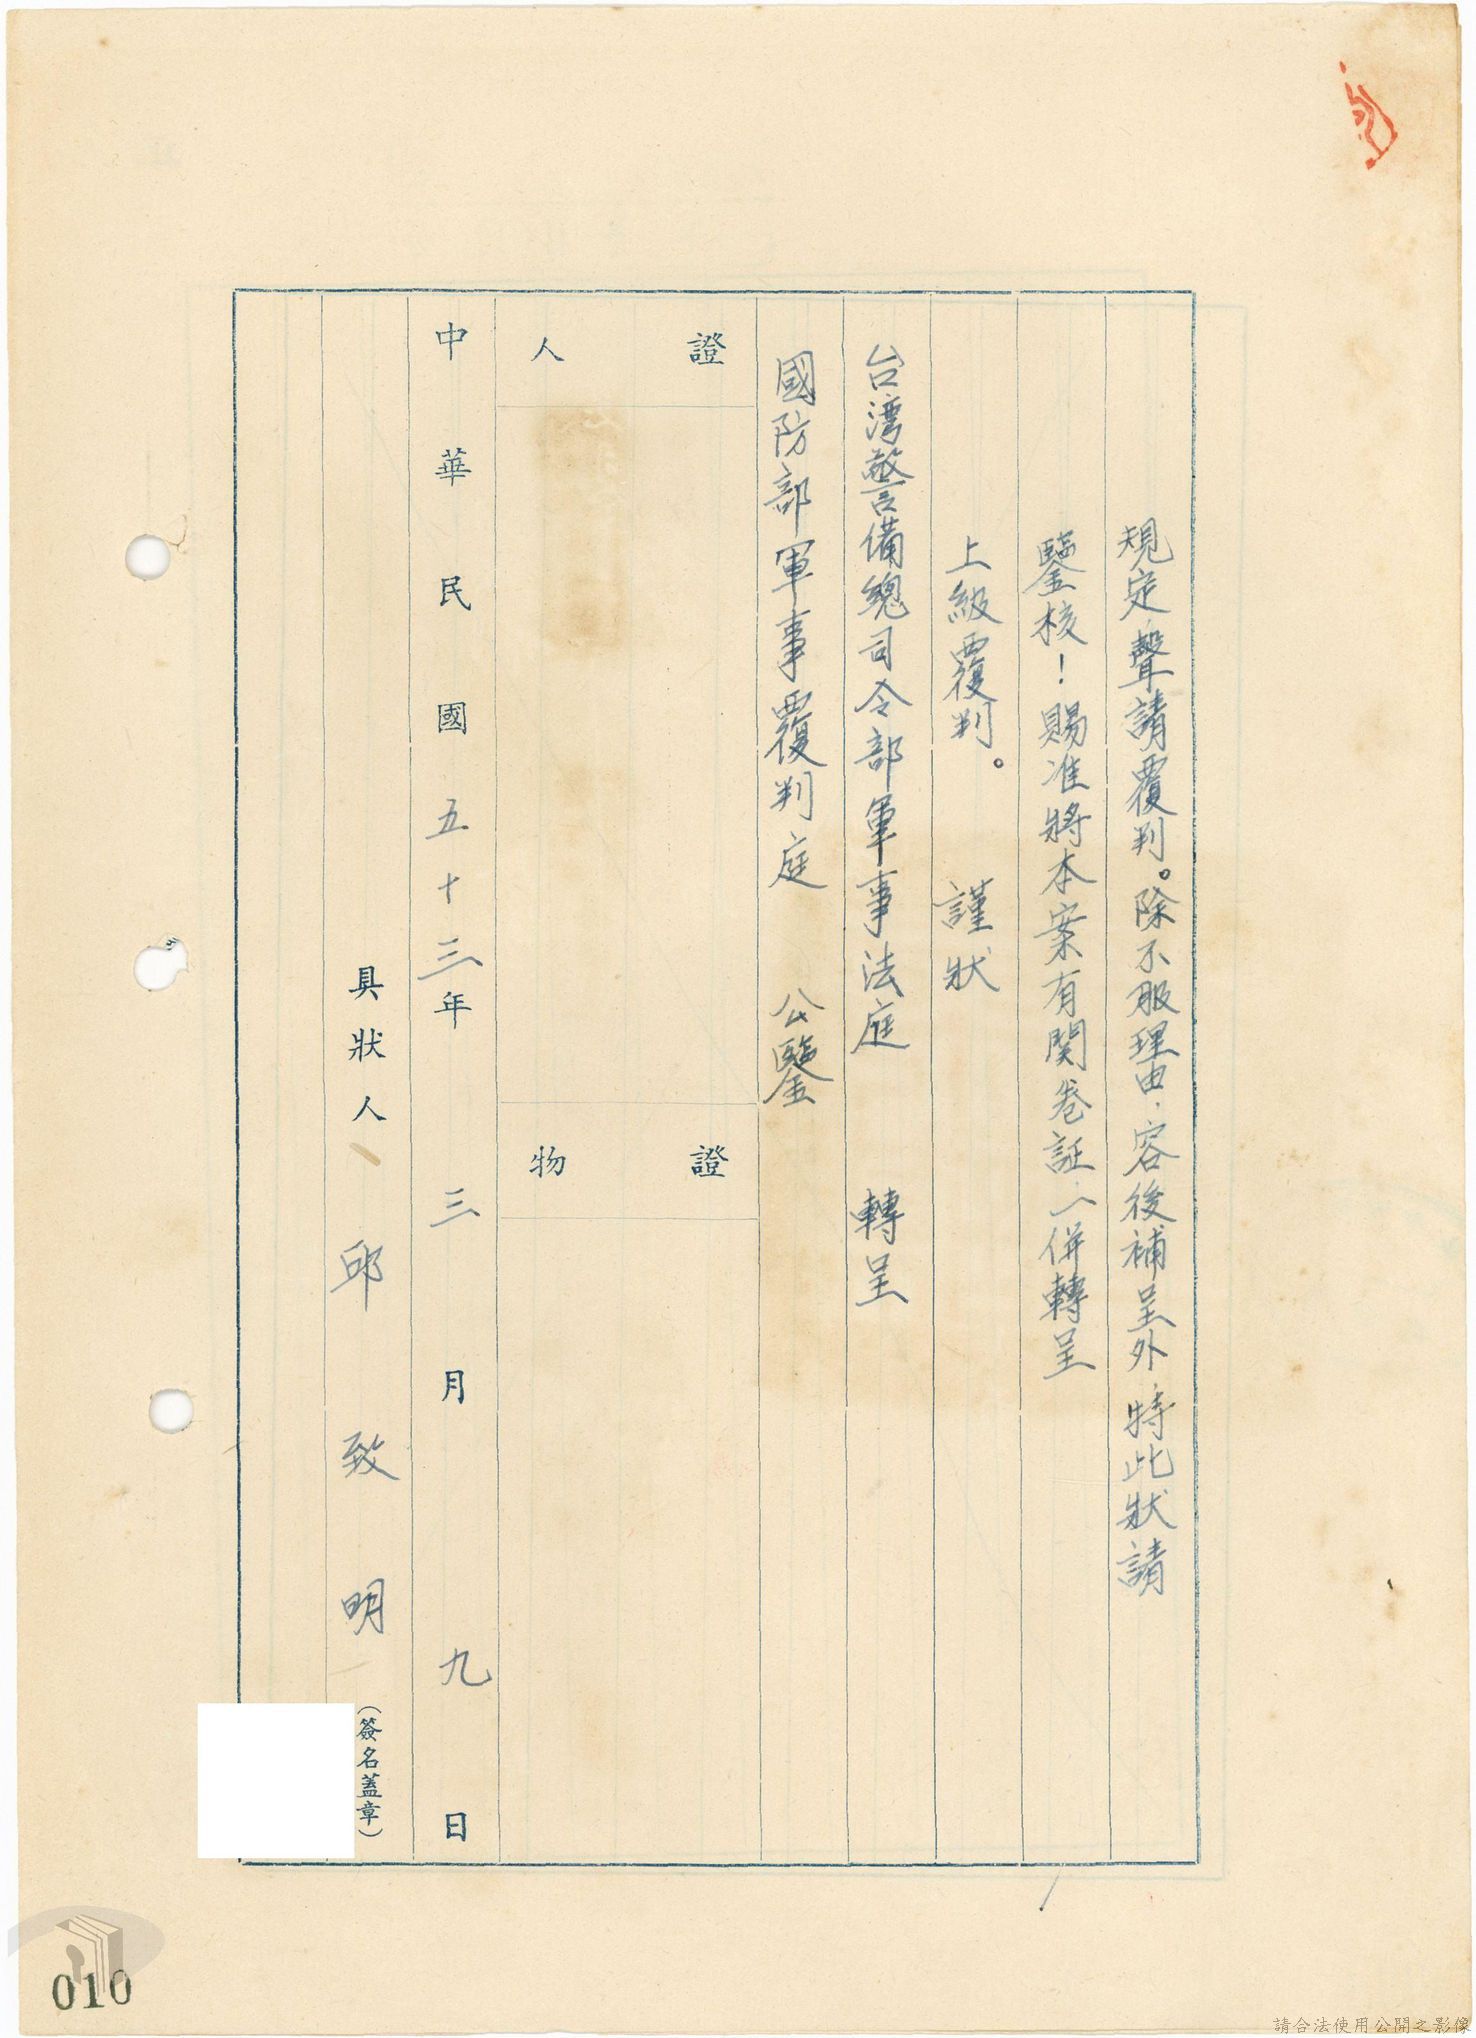 規定，聲請覆判。除不服理由，容後補呈外，特此狀請
鑒核！賜准將本案有関卷証，一併轉呈
上級覆判。　謹狀
台湾警備總司令部軍事法庭　轉呈
國防部軍事覆判庭　公鑒
證人
證物
中華民國五十三年三月九日
具狀人　邱致明（簽名蓋章）
010
請合法使用公開之影像